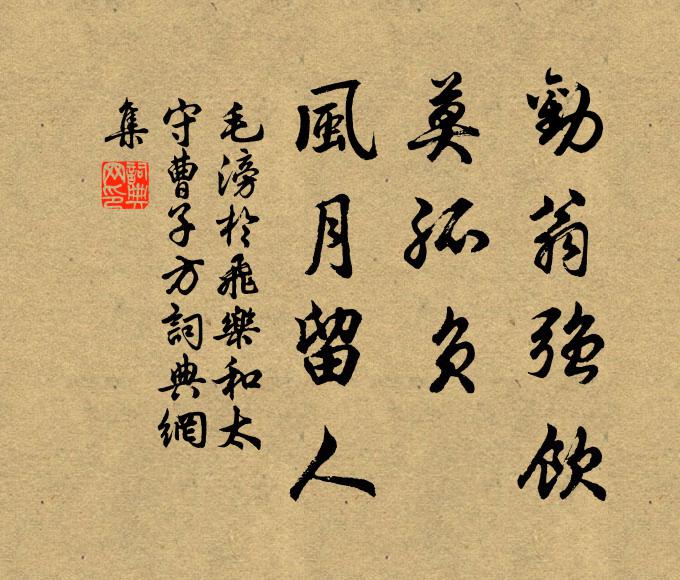 勸翁強飲
莫孤負
風月留人
毛滂於飛樂和太
守曹子方詞典網
集
詞典網印